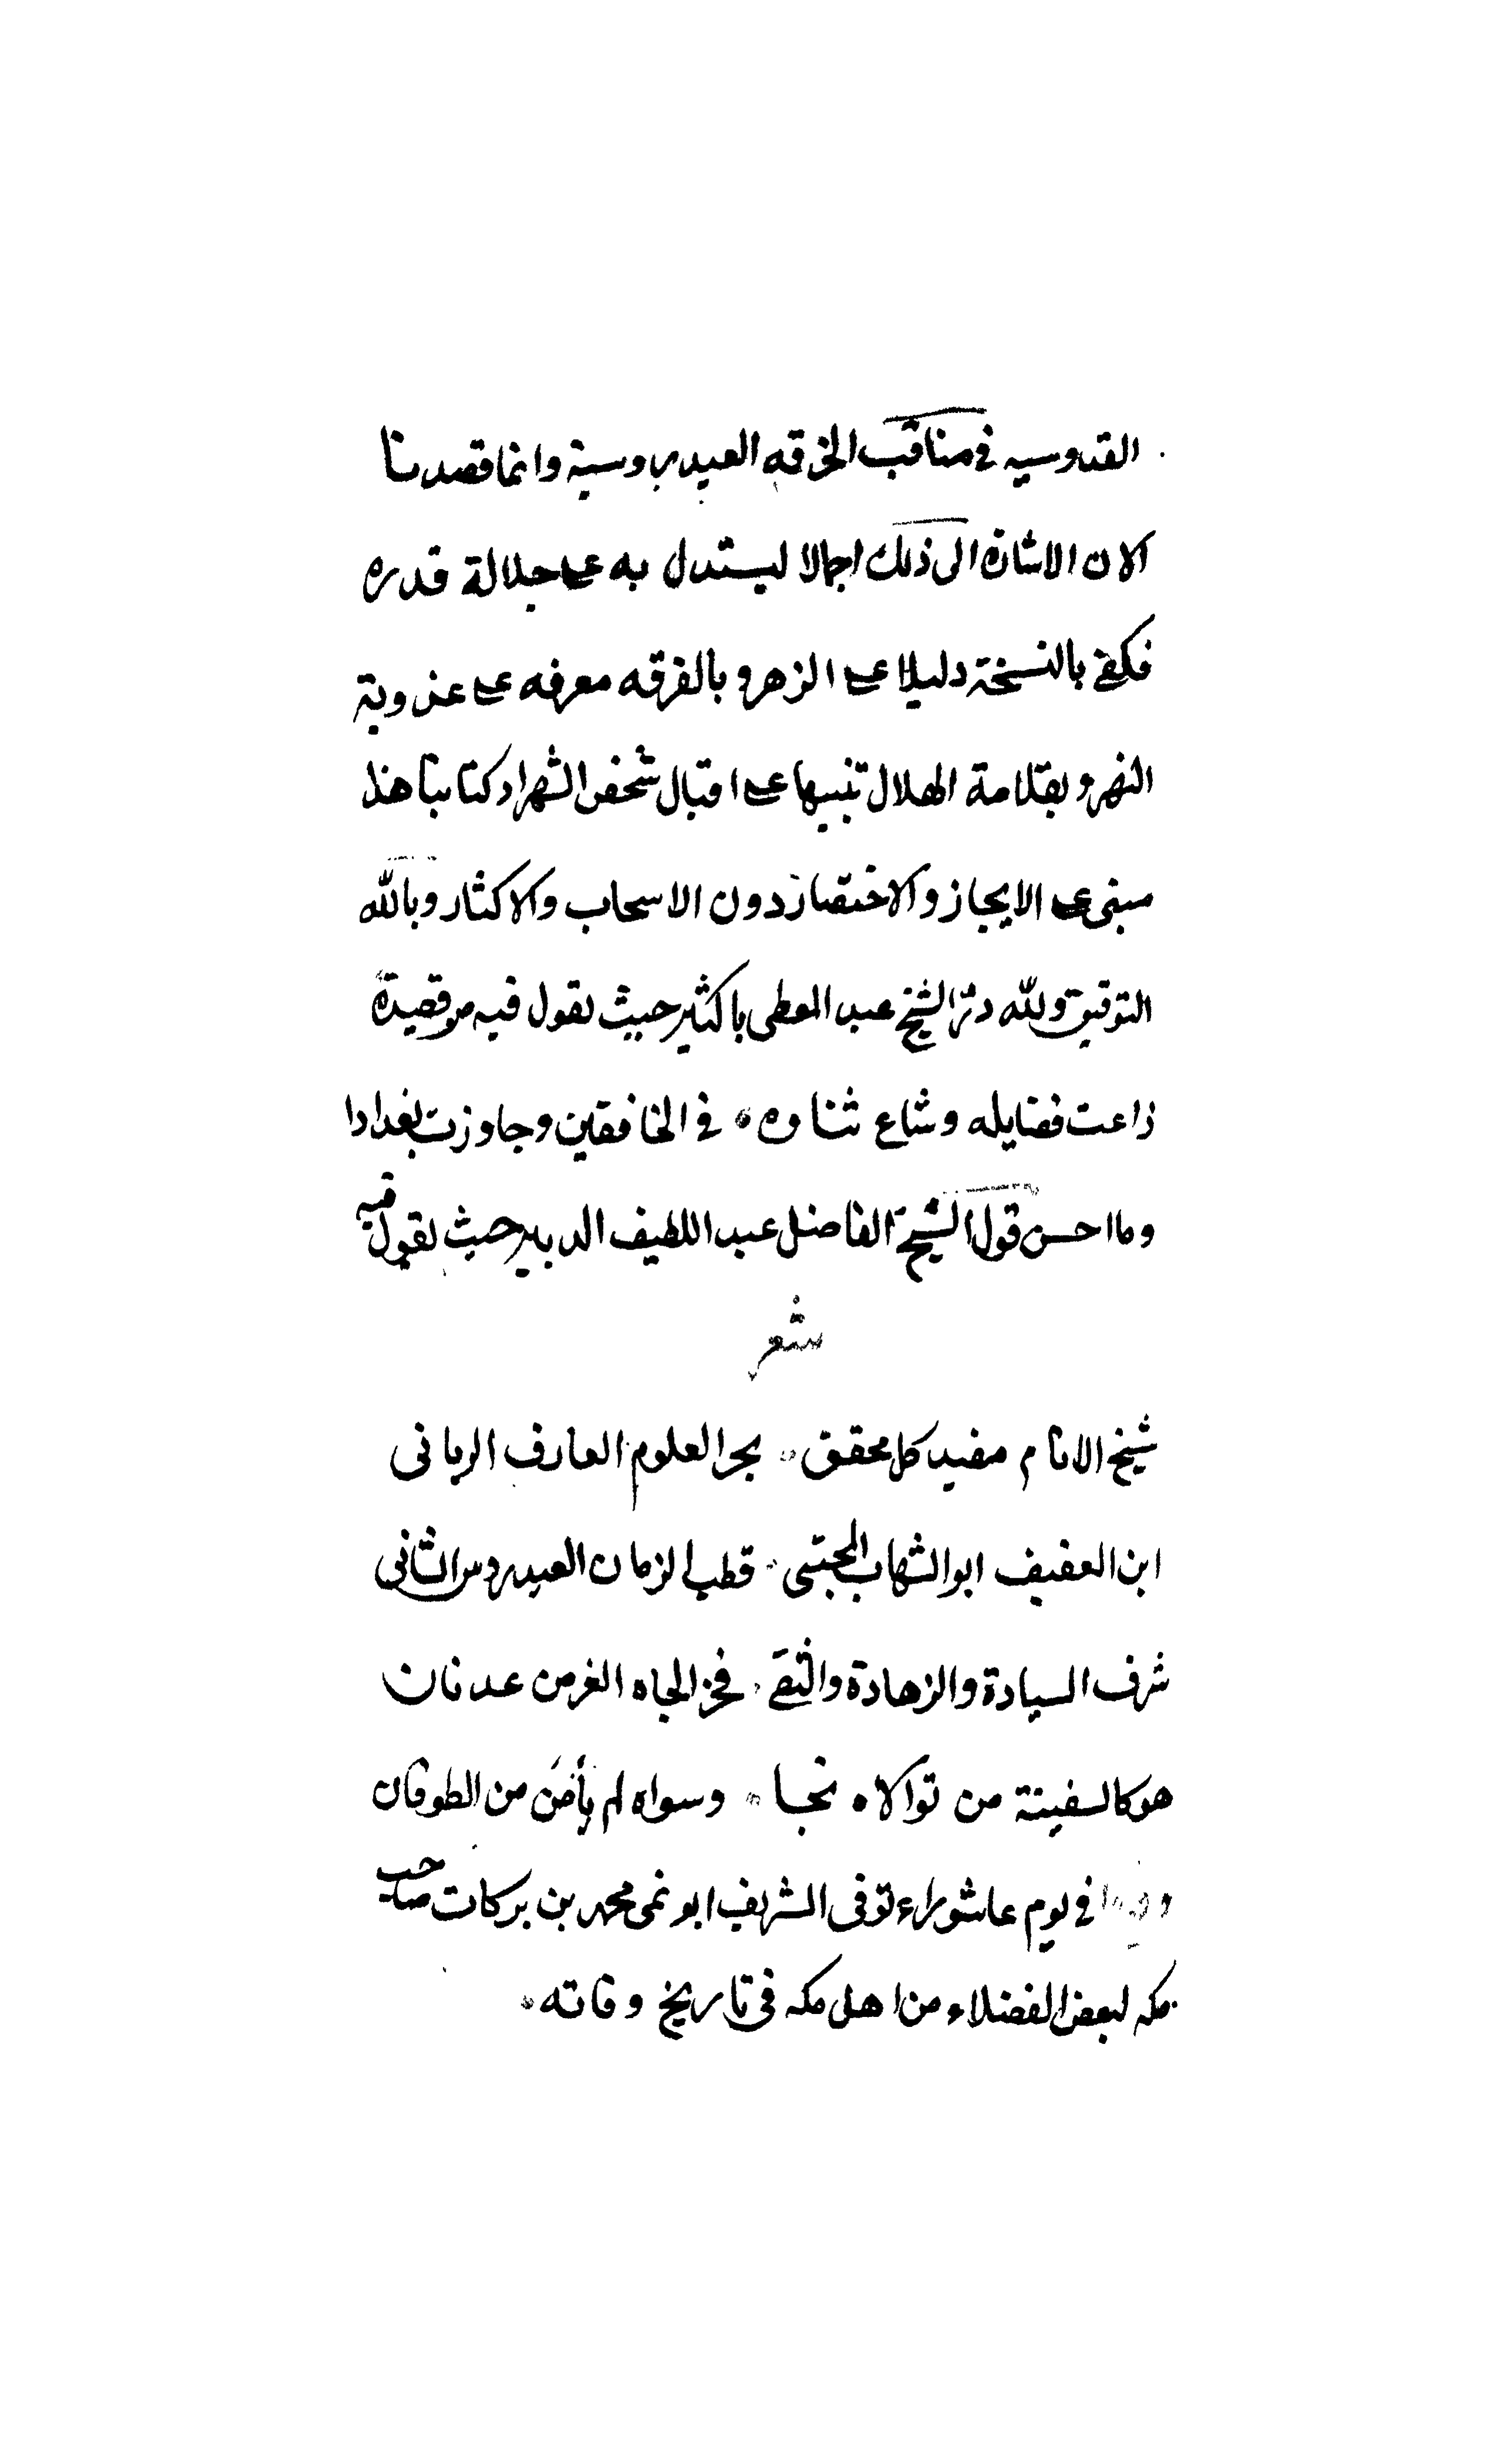 القدوسيه في مناقب الخرقه العيدروسية وانما قصدنا
الان الاشارة الى ذلك اجمالا ليستدل به على جلالة قدره
فكفى بالنسخة دليلا على الزهر وبالغرفه معرفه على عذوبة
النهر وبقلامة الهلال تنبيها على اقبال شخص الشهر اذ كتابنا هذا
مبنى على الايجاز والاختصار دون الاسحاب والاكثار وبالله
التوفيق ولله در الشيخ عبد المعطى باكثير حيث يقول فيه من قصيدة
ذاعت فضايله وشاع ثناوه في الخافقين وجاوزت بغدادا
وما احسن قول الشيخ الفاضل عبد اللطيف الدبير حيث يقول فيه
شعر
شيخ الانام مفيد كل محقق بحر العلوم العارف الربانى
ابن العفيف ابو الشهاب المجتبى قطب الزمان العيدروس الثانى
شرف السيادة والزهادة والتقى فخر الجاه الغر من عدنان
هو كالسفينة من توالاه نجا وسواه لم يأمن من الطوفان
وفيها في يوم عاشوراء توفى الشريف ابو نمى محمد بن بركات صاحب
مكه لبعض الفضلاء من اهل مكه في تاريخ وفاته